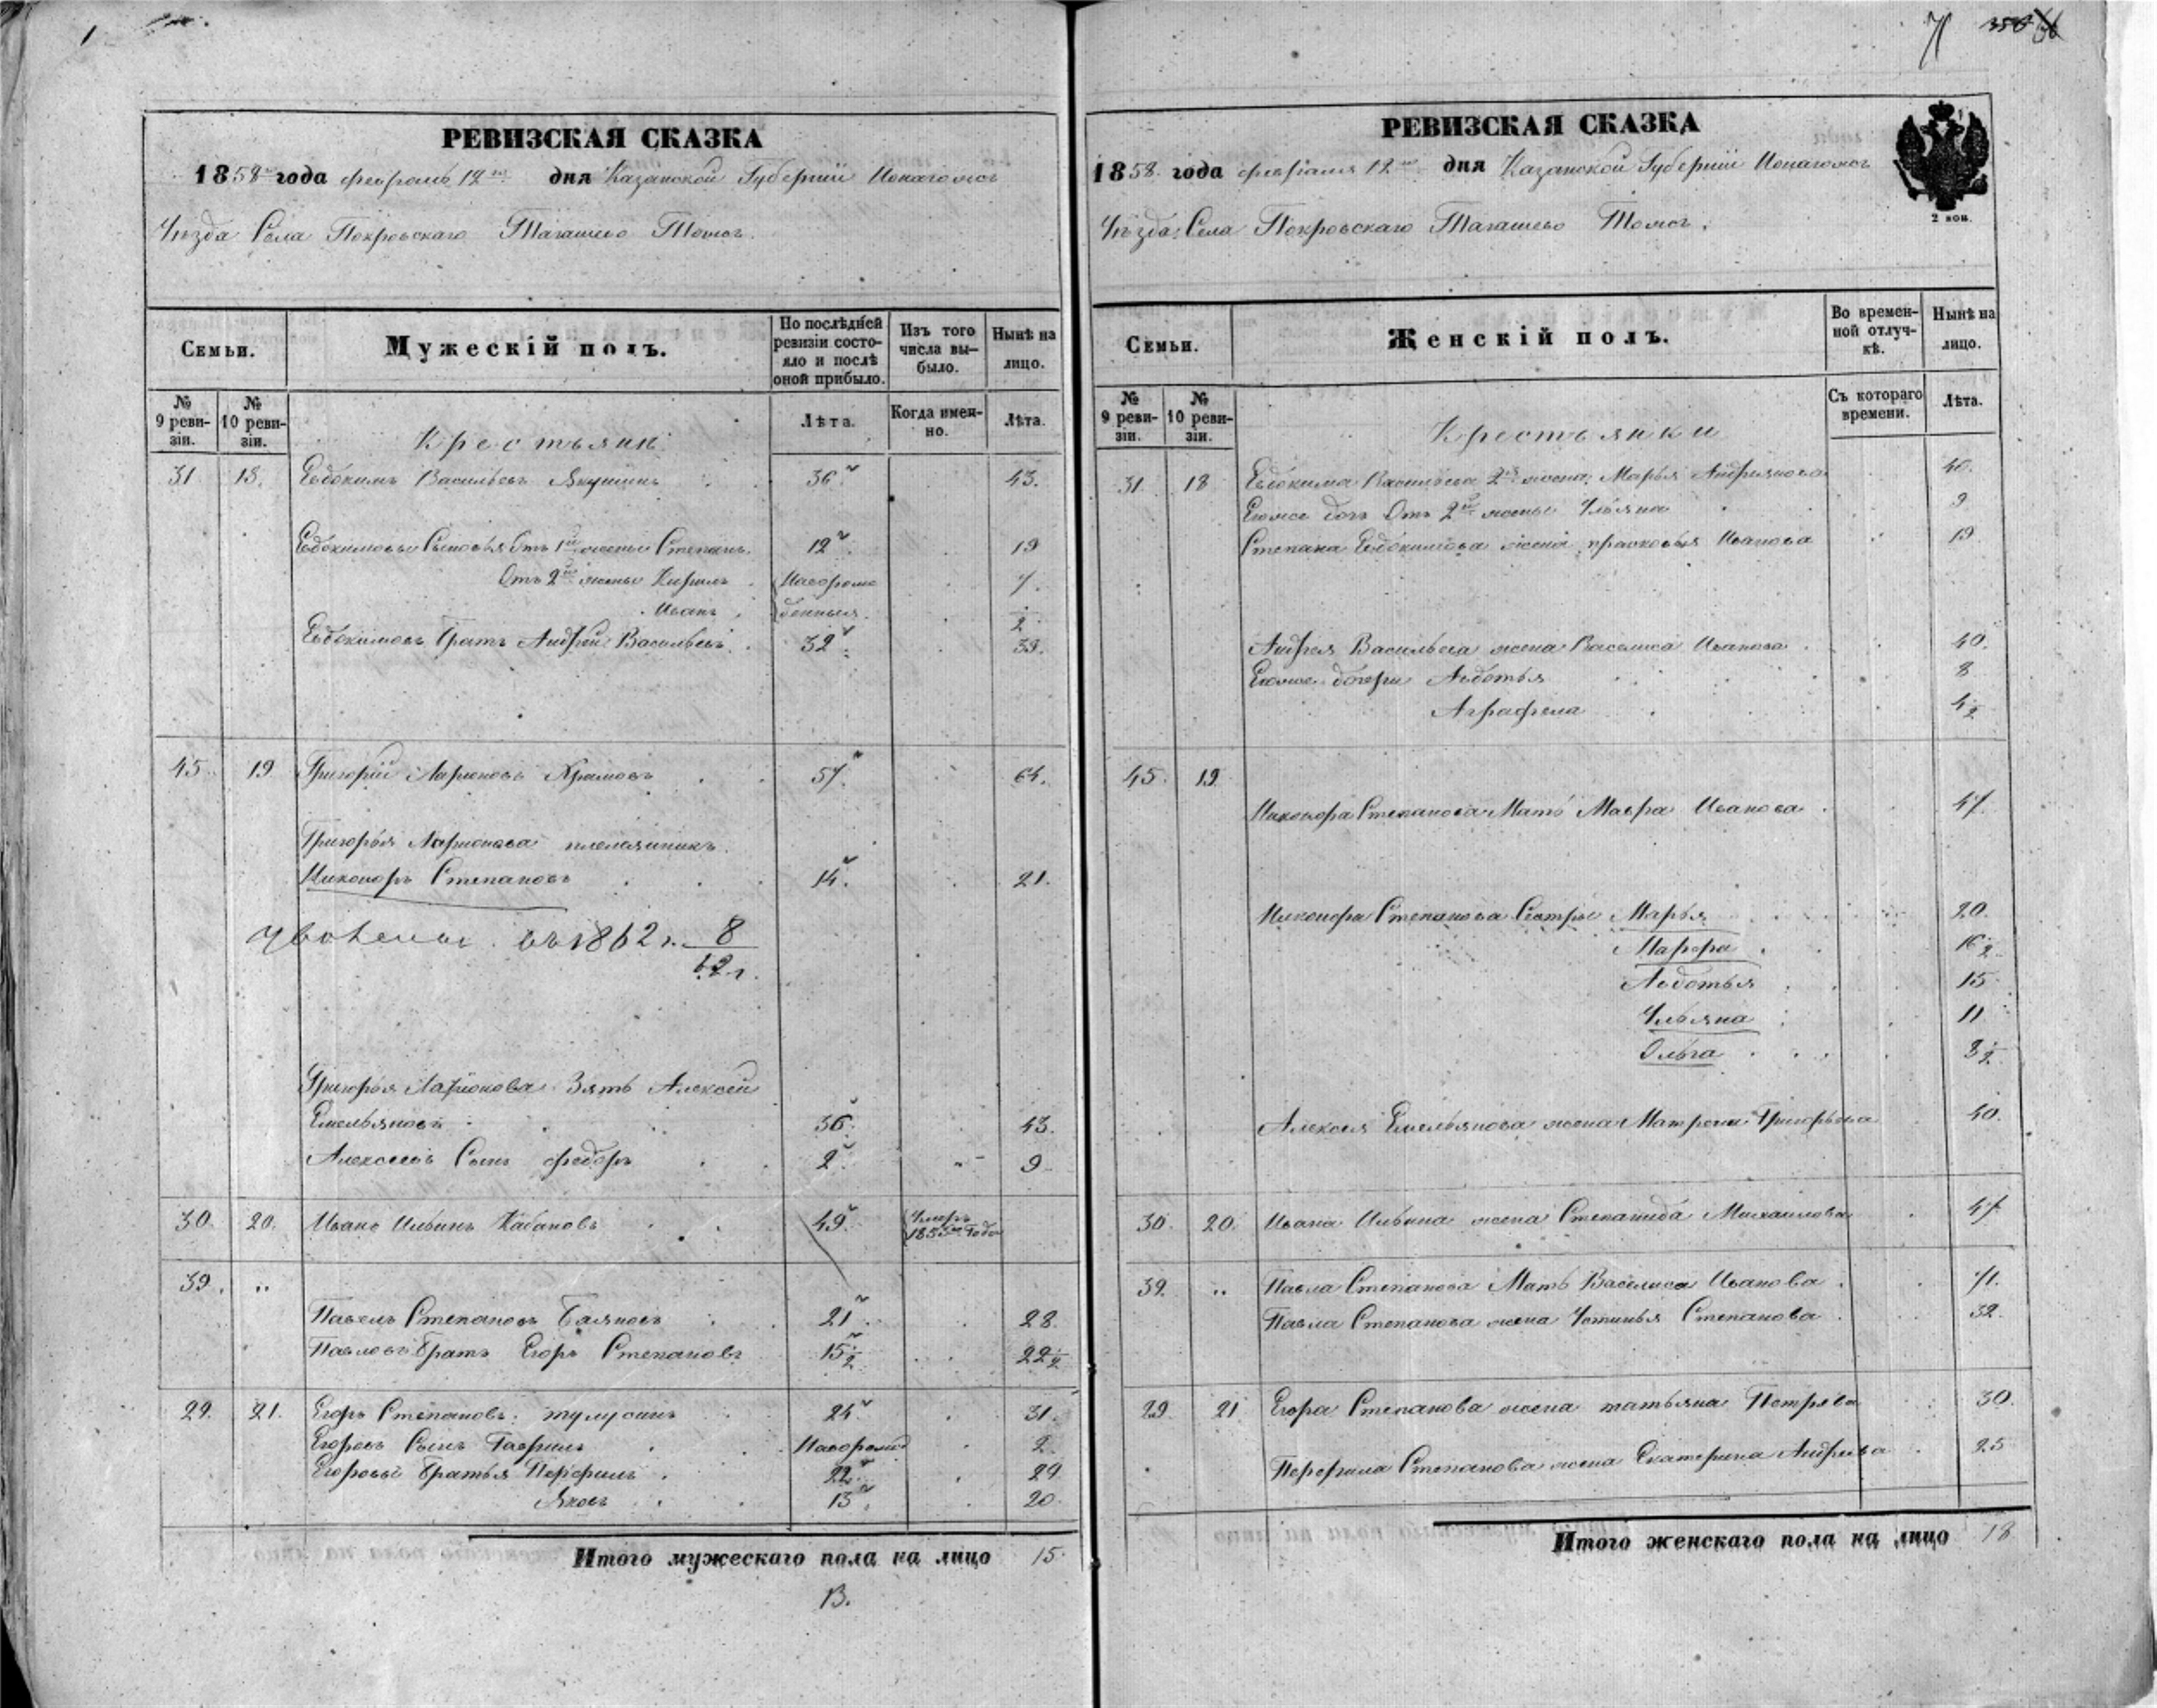 1
РЕВИЗСКАЯ СКАЗКА
1858 года февраля 12го дня Казанской Губернии
Уѣзда Села Покровскаго Тагашево Тожъ.
Семьи.
Мужескій полъ.
По послѣдней ревизіи состояло и послѣ оной прибыло.
Изъ того числа выбыло.
Нынѣ на лицо.
№ 9 ревизіи.
№ 10 ревизіи.
Лѣта.
Когда именно.
Лѣта.
Крестьяне
31 18. Евдокимъ Васильевъ Якушинъ 36 43.
Евдокимовы Сыновья Отъ 1й жены Степанъ. 12 19
Отъ 2й жены Кирилъ Новорож 7.
Иванъ денныя ½
Евдокимовъ братъ Андрей Васильевъ. 32 39.
45 19 Григорій Ларионовъ Храмовъ 57 64.
Григорья Ларионова племянникъ.
Никоноръ Степановъ 14. 21.
въ 1862 г. 8
Григорья Ларионова Зять Алексей
Емельяновъ 36. 43.
Алексеевъ Сынъ федоръ 2. 9
30. 20. Иванъ Ильинъ Кабановъ 49 Умеръ 1855 года
39. "
Павелъ Степановъ Баляновъ 21 28
Павловъ братъ Егоръ Степановъ 15½ 22½
29. 21. Егоръ Степановъ 24 31.
Егоровъ Сынъ Гаврилъ Новорожд 2.
Егоровы братья Перфилъ 22. 29
Яковъ 13. 20
Итого мужескаго пола на лицо 15.
13.
71 66
РЕВИЗСКАЯ СКАЗКА
1858 года февраля 12го дня Казанской Губерніи
Уѣзда Села Покровскаго Тагашево Тожъ.
2 коп.
Семьи.
Женскій полъ.
Во временной отлучкѣ.
Нынѣ на лицо.
№ 9 ревизіи.
№ 10 ревизіи.
Съ котораго времени.
Лѣта.
Крестьянки
31 18 Евдокима Васильева 2я жена Марья Андреянова 40.
Егоже дочь Отъ 2й жены Ульяна 9
Степана Евдокимова жена прасковья Иванова 19
Андрея Васильева жена Василиса Иванова 40.
Егоже дочери Авдотья 8
Аграфена 4½
45. 19
Никонора Степанова Мать Мавра Иванова 47.
Никонора Степанова Сестры Марья 20.
Марфа 16½
Авдотья 15
Ульяна 11
Ольга 8½
Алексея Емельянова жена Матрена Григорьева 40.
30. 20. Ивана Ильина жена Степанида Михаилова 47
39. " Павла Степанова Мать Василиса Иванова 71.
Павла Степанова жена Устинья Степанова 32.
29 21 Егора Степанова жена татьяна Петрова 30.
Перфила Степанова жена Екатерина Андреева 25
Итого женскаго пола на лицо 18